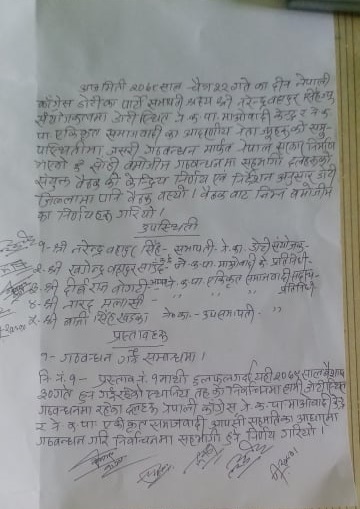 आज मिति २०७८ साल चैत्र २२ गतेका दिन नेपाली
कांग्रेस डोटीका पार्टी सभापती श्री नरेन्द्र बहादुर सिंहज्यू
संयोजकत्वमा डोटी स्थित ने.क.पा. माओवादी केन्द्र र ने.क.
पा. एकिकृत समाजवादी का आदरणीय नेता ज्यूहरुको
उपस्थितीमा जसरी गठवन्धन मार्फत नेपाल सरकार निर्माण
भएको छ सोही वमोजीम गठवन्धनमा सहभागी दलहरुको
संयुक्त वैठक को केन्द्रिय निर्णय एवं निर्देशन अनुसार डोटी
जिल्लामा पनि वैठक वस्यो । वैठक वाट निम्न वमोजीम
का निर्णयहरु गरियो ।
उपस्थिती
१- श्री नरेन्द्र बहादुर सिंह - सभापती ने.का. डोटी संयोजक-
२- श्री खगेन्द्र बहादुर - ने.क.पा. माओवादी के प्रतिनिधी-
३- श्री ने.क.पा. एकिकृत समाजवादी
४- श्री नारद " " " प्रतिनिधी
५- श्री सिंह खड्का ने.का. - उपसभापती - "
प्रस्तावहरु
१- गठवन्धन गर्ने सम्वन्धमा ।
नि.नं. १- प्रस्ताव नं. १ माथी छलफल गर्दा यही २०७९ साल वैशाख
३० गते हुन गई रहेको स्थानिय तह को निर्वाचनमा हामी
गठवन्धनमा रहेका दलहरु नेपाली कांग्रेस ने.क.पा. माओवादी केन्द्र
र ने.क.पा. एकीकृत समाजवादी आपसी सहमतिका आधारमा
गठवन्धन गरि निर्वाचनमा सहभागी हुने निर्णय गरियो ।